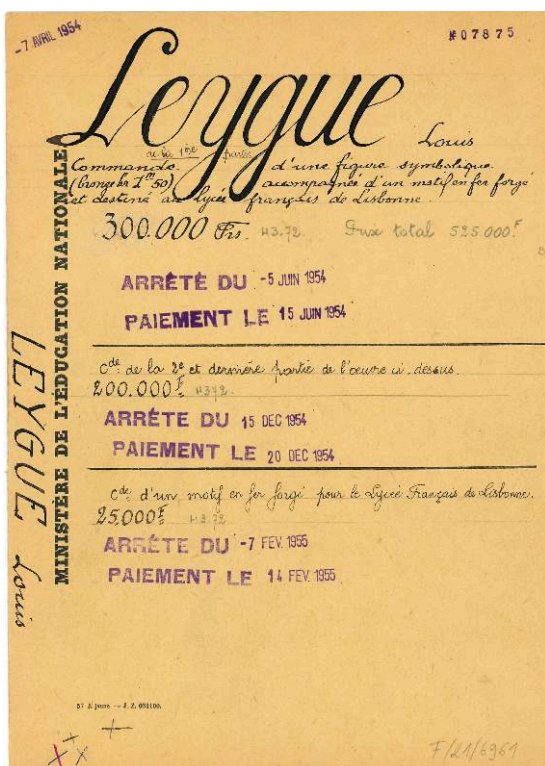 -7 AVRIL 1954
№ 07875
Leygue
Louis
de la 1ère partie
Commande d'une figure symbolique
(bronze de 1m50) accompagnée d'un motif en fer forgé
et destiné au Lycée français de Lisbonne.
300.000 Frs H3.72. Prix total 525.000F
ARRÊTÉ DU -5 JUIN 1954
PAIEMENT LE 15 JUIN 1954
Cde de la 2e et dernière partie de l'œuvre ci-dessus.
200.000F H372
ARRÊTÉ DU 15 DEC 1954
PAIEMENT LE 20 DEC 1954
Cde d'un motif en fer forgé pour le Lycée Français de Lisbonne.
25.000F H3.72
ARRÊTÉ DU -7 FEV. 1955
PAIEMENT LE 14 FEV. 1955
MINISTÈRE DE L'ÉDUCATION NATIONALE
LEYGUE Louis
F/21/6961